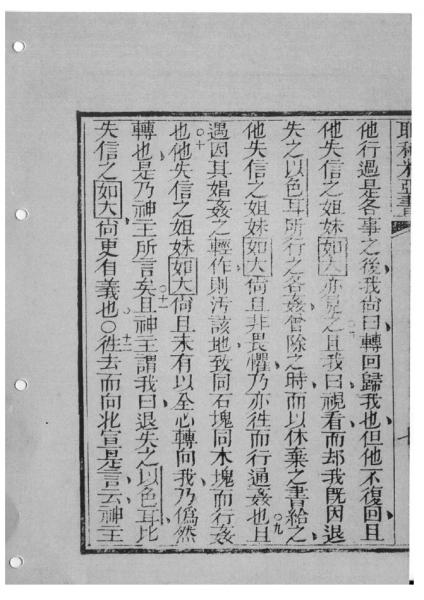 耶利米亞書
他行過是各事之後我尙曰轉回歸我也但他不復回且
他失信之姐妹如大亦見之○八且我曰視看而却我旣因退
失之以色耳所行之各姦曾除之時而以休棄之書給之
他失信之姐妹如大尙且非畏懼乃亦徃而行通姦也○九且
遇因其娼姦之輕作則汚該地致同石塊同木塊而行姦
也○十他失信之姐妹如大尙且未有以全心轉向我乃僞然
轉也是乃神王所言矣○十一且神王謂我曰退失之以色耳比
失信之如大尙更有義也○十二○徃去而向北宣是言云神王